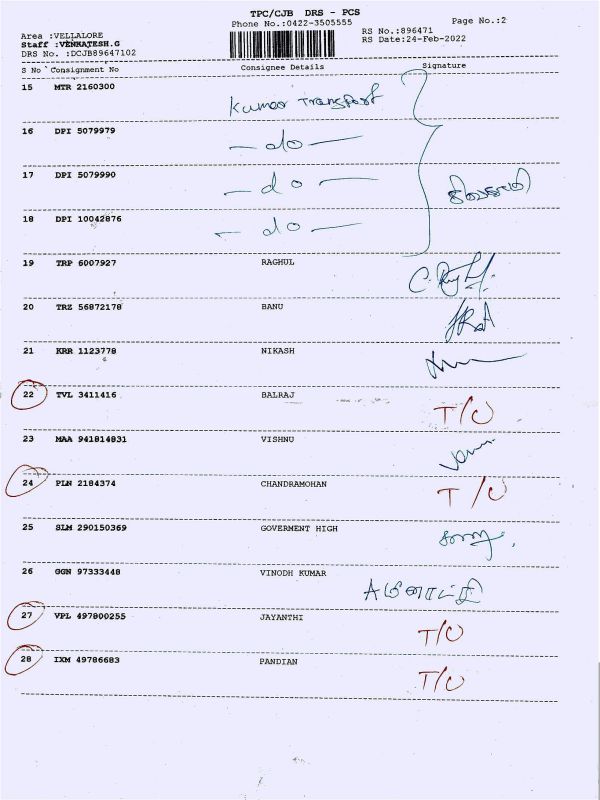 TPC/CJB DRS - PCS
Phone No.:0422-3505555
Page No.:2
Area :VELLALORE
RS No.:896471
Staff :VENKATESH.G
RS Date:24-Feb-2022
DRS No. :DCJB89647102
S No Consignment No Consignee Details Signature
15 MTR 2160300 Kumar Transport
16 DPI 5079979 - do -
17 DPI 5079990 - do -
18 DPI 10042876 - do -
19 TRP 6007927 RAGHUL
20 TRZ 56872178 BANU
21 KRR 1123778 NIKASH
22 TVL 3411416 BALRAJ T/O
23 MAA 941814831 VISHNU
24 PLN 2184374 CHANDRAMOHAN T/O
25 SLM 290150369 GOVERMENT HIGH
26 GGN 97333448 VINODH KUMAR
27 VPL 497800255 JAYANTHI T/O
28 IXM 49786683 PANDIAN T/O